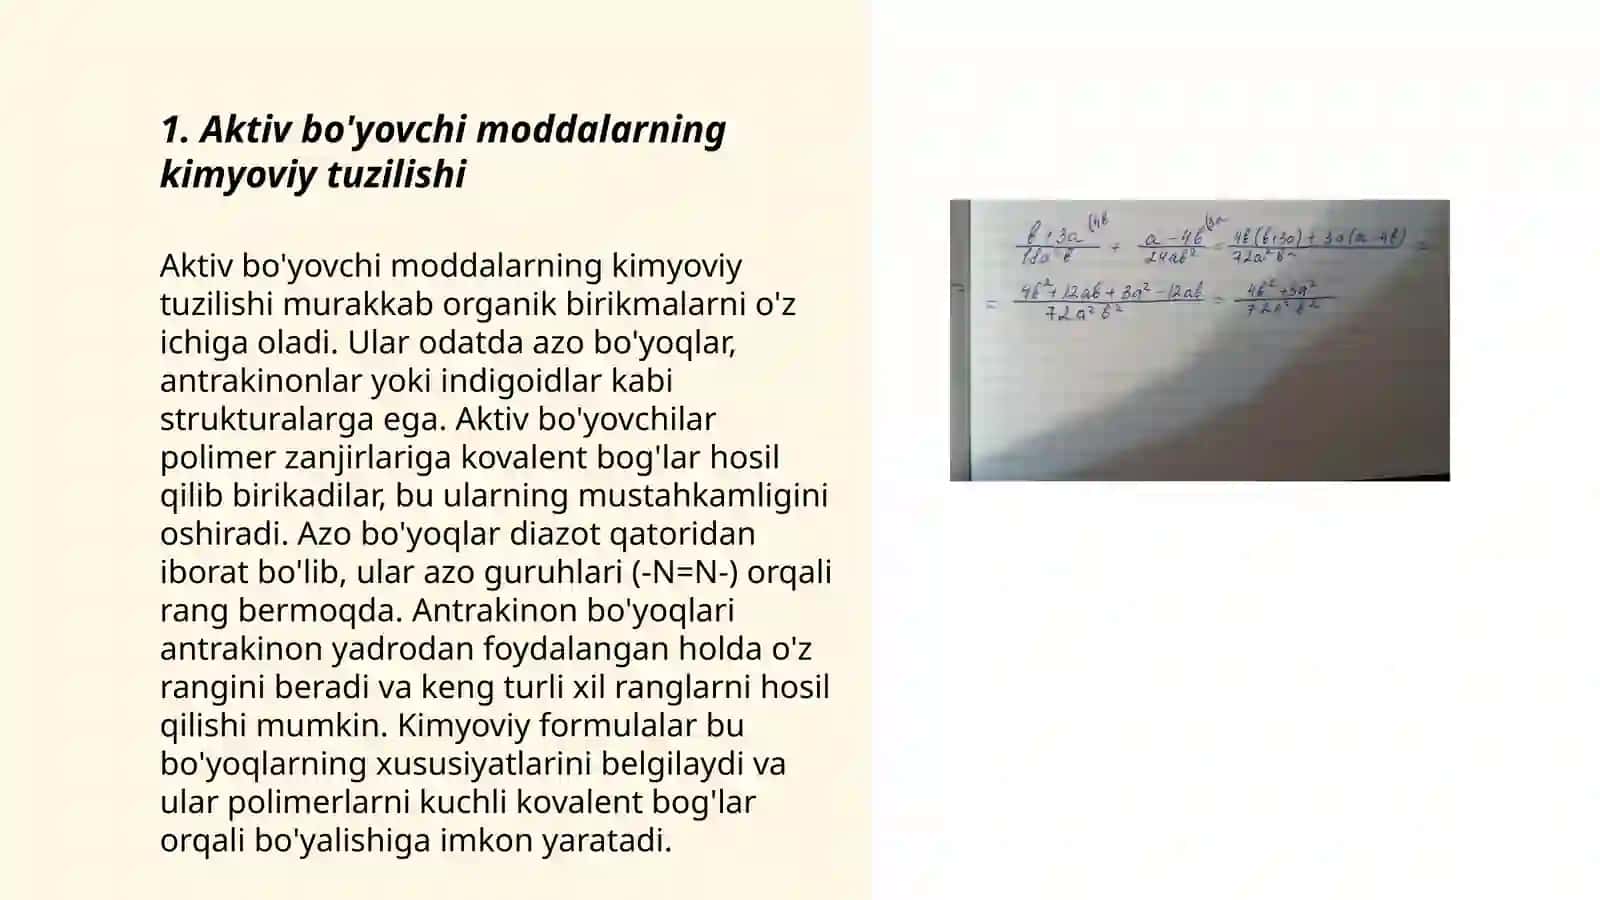 1. Aktiv bo'yovchi moddalarning
kimyoviy tuzilishi
Aktiv bo'yovchi moddalarning kimyoviy
tuzilishi murakkab organik birikmalarni o'z
ichiga oladi. Ular odatda azo bo'yoqlar,
antrakinonlar yoki indigoidlar kabi
strukturalarga ega. Aktiv bo'yovchilar
polimer zanjirlariga kovalent bog'lar hosil
qilib birikadilar, bu ularning mustahkamligini
oshiradi. Azo bo'yoqlar diazot qatoridan
iborat bo'lib, ular azo guruhlari (-N=N-) orqali
rang bermoqda. Antrakinon bo'yoqlari
antrakinon yadrodan foydalangan holda o'z
rangini beradi va keng turli xil ranglarni hosil
qilishi mumkin. Kimyoviy formulalar bu
bo'yoqlarning xususiyatlarini belgilaydi va
ular polimerlarni kuchli kovalent bog'lar
orqali bo'yalishiga imkon yaratadi.
в+3a a-4в 4в(в+3a)+3a(a-4в)
24aв² 72a²в²
= 4в²+12aв+3a²-12aв = 4в²+3a²
72a²в² 72a²в²